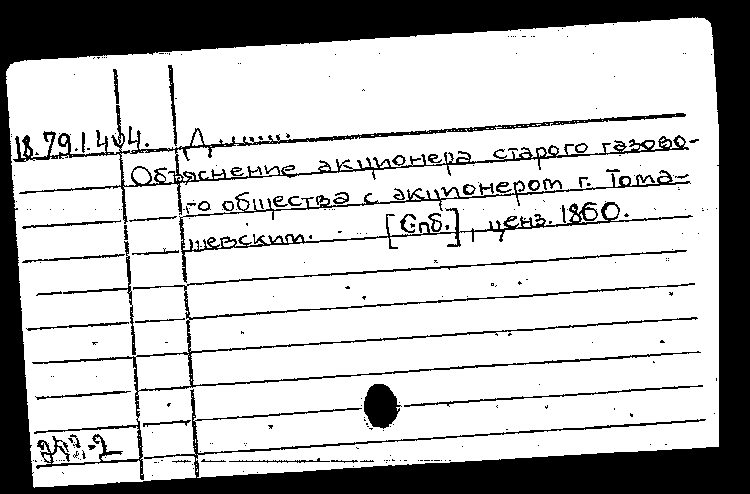 18.79.1.404. Д........
Объяснение акционера старого газово-
го общества с акционером г. Тома-
шевским. [Спб.], ценз. 1860.